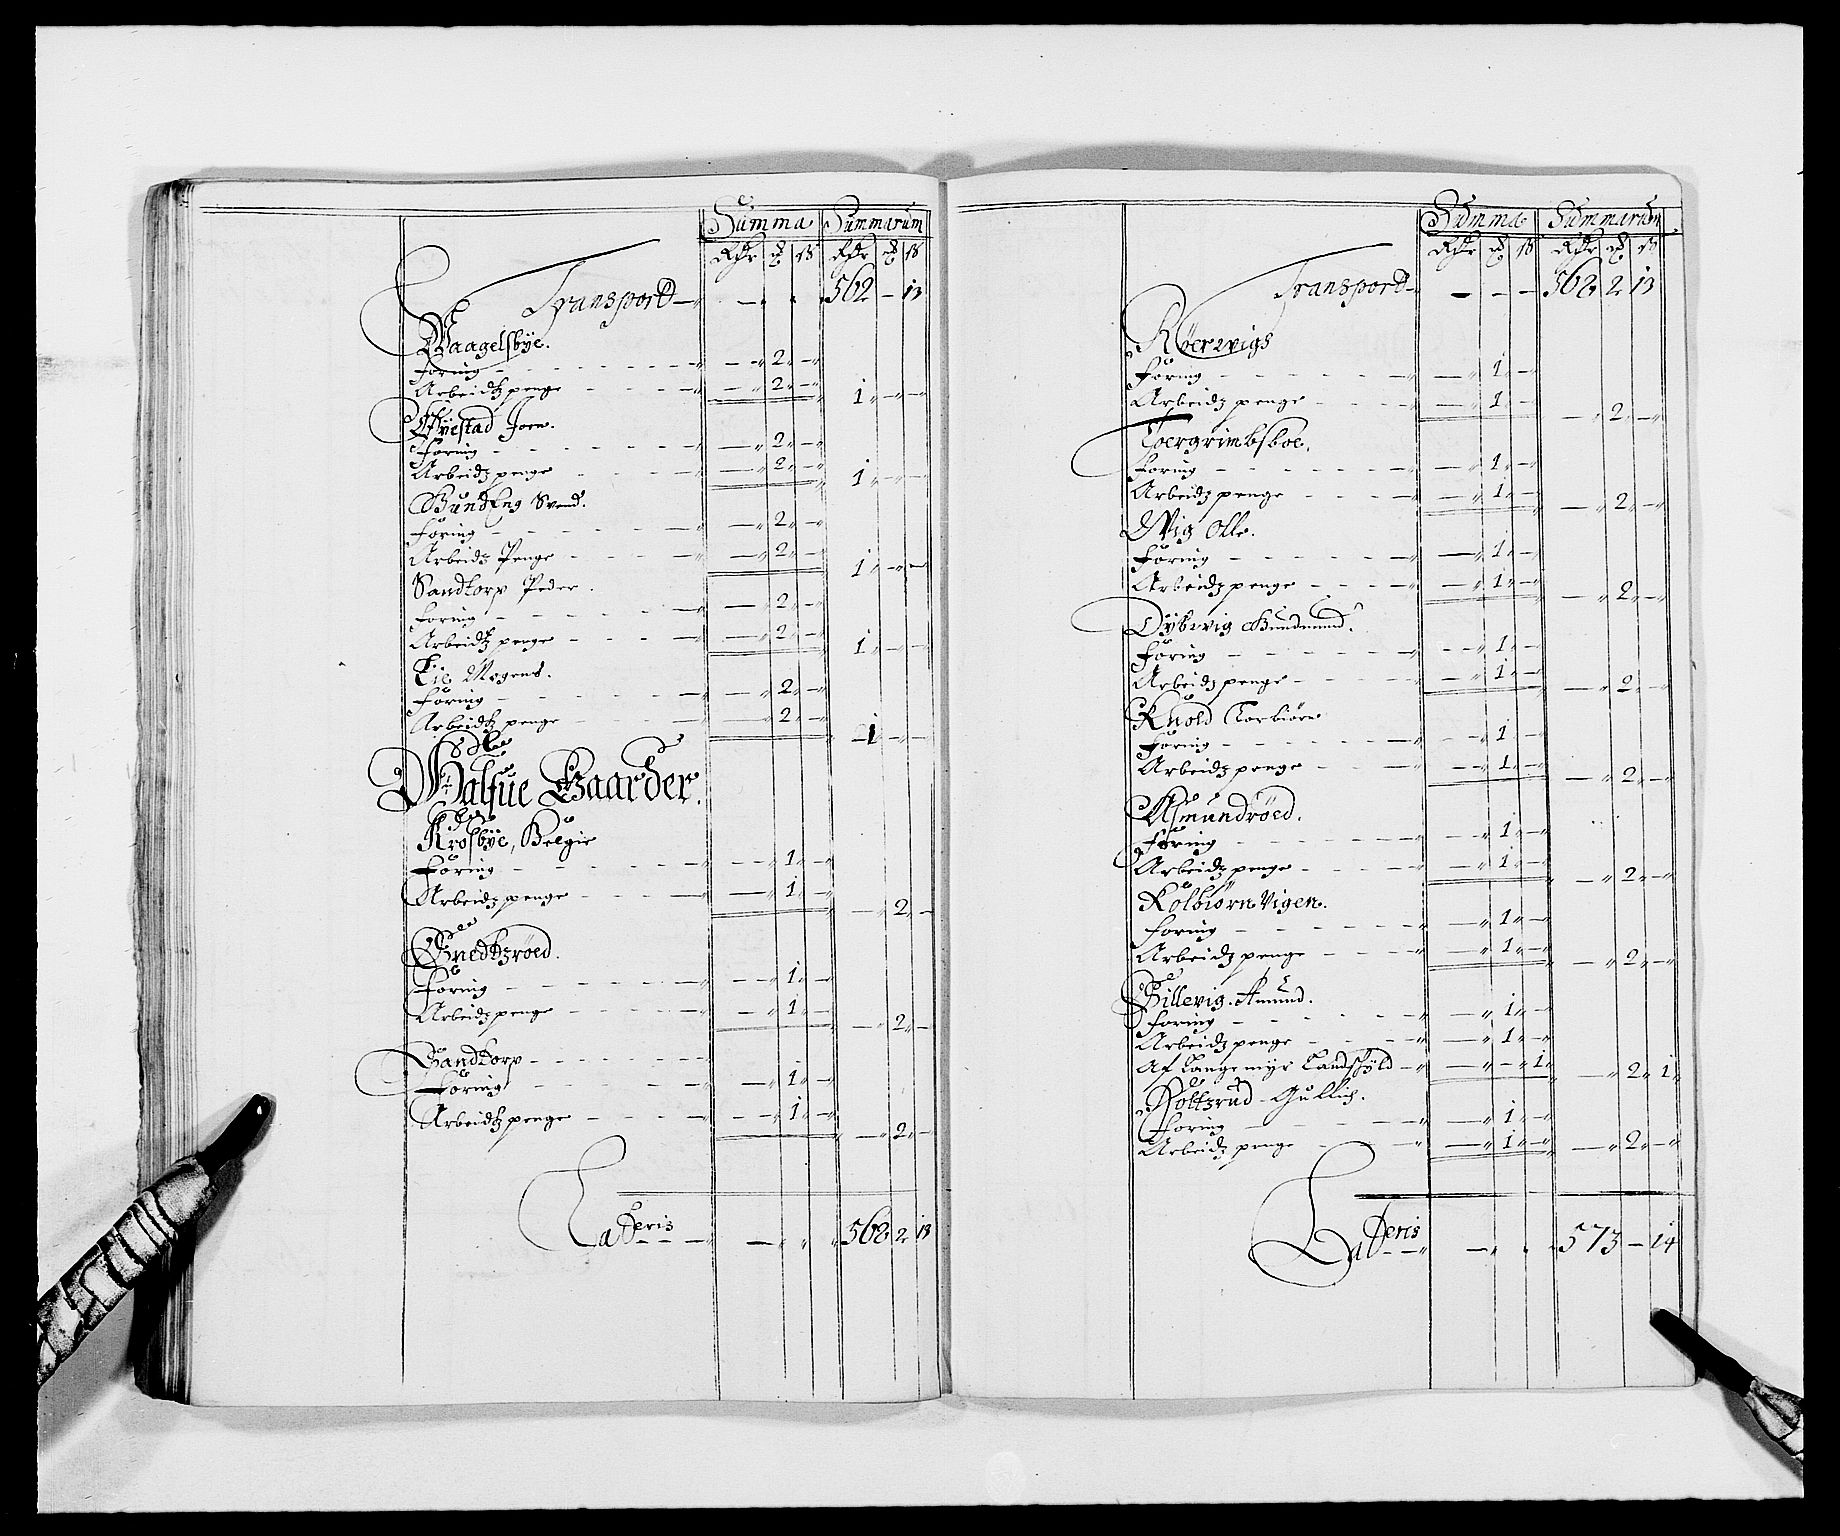 Summa Summarum
Rdr ort ß Rdr ort ß
Transport — — 562 — 13
Waagelsbye.
Foring — 2 —
Arbeidtz penge — 2 — 1 — —
Øfvestad Joen.
Foring — 2 —
Arbeidtz penge — 2 — 1 — —
Bundeng Svend.
Foring — 2 —
Arbeidtz Penge — 2 — 1 — —
Sandtorp Peder.
Foring — 2 —
Arbeidtz penge — 2 — 1 — —
Lie Mogens.
Foring — 2 —
Arbeidtz penge — 2 — 1 — —
Halfue Gaarder.
Krosbye, Helgie
Foring — 1 —
Arbeidtz penge — 1 — — 2 —
Gnedtzröed.
Foring — 1 —
Arbeidtz penge — 1 — — 2 —
Sandtorp
Foring — 1 —
Arbeidtz penge — 1 — — 2 —
Lateris — 568 2 13
Summa Summarum
Rdr ort ß Rdr ort ß
Transport — — — 568 2 13
Röervigs
Foring — 1 —
Arbeidtz penge — 1 — — 2 —
Toergrimbsboe.
Foring — 1 —
Arbeidtz penge — 1 — — 2 —
Wig Olle.
Foring — 1 —
Arbeidtz penge — 1 — — 2 —
Dybvig Gundmund.
Foring — 1 —
Arbeidtz penge — 1 — — 2 —
Knold Torbiörn
Foring — 1 —
Arbeidtz penge — 1 — — 2 —
Asmundröed.
Foring — 1 —
Arbeidtz penge — 1 — — 2 —
Kolbiörn Vigen.
Foring — 1 —
Arbeidtz penge — 1 — — 2 —
Gillevig. Amund.
Foring — 1 —
Arbeidtz penge — 1 —
Af Langemyr Landskyld — — 1 — 2 1
Rottzrud Gullich.
Foring — 1 —
Arbeidtz penge — 1 — — 2 —
Lateris — 573 — 14